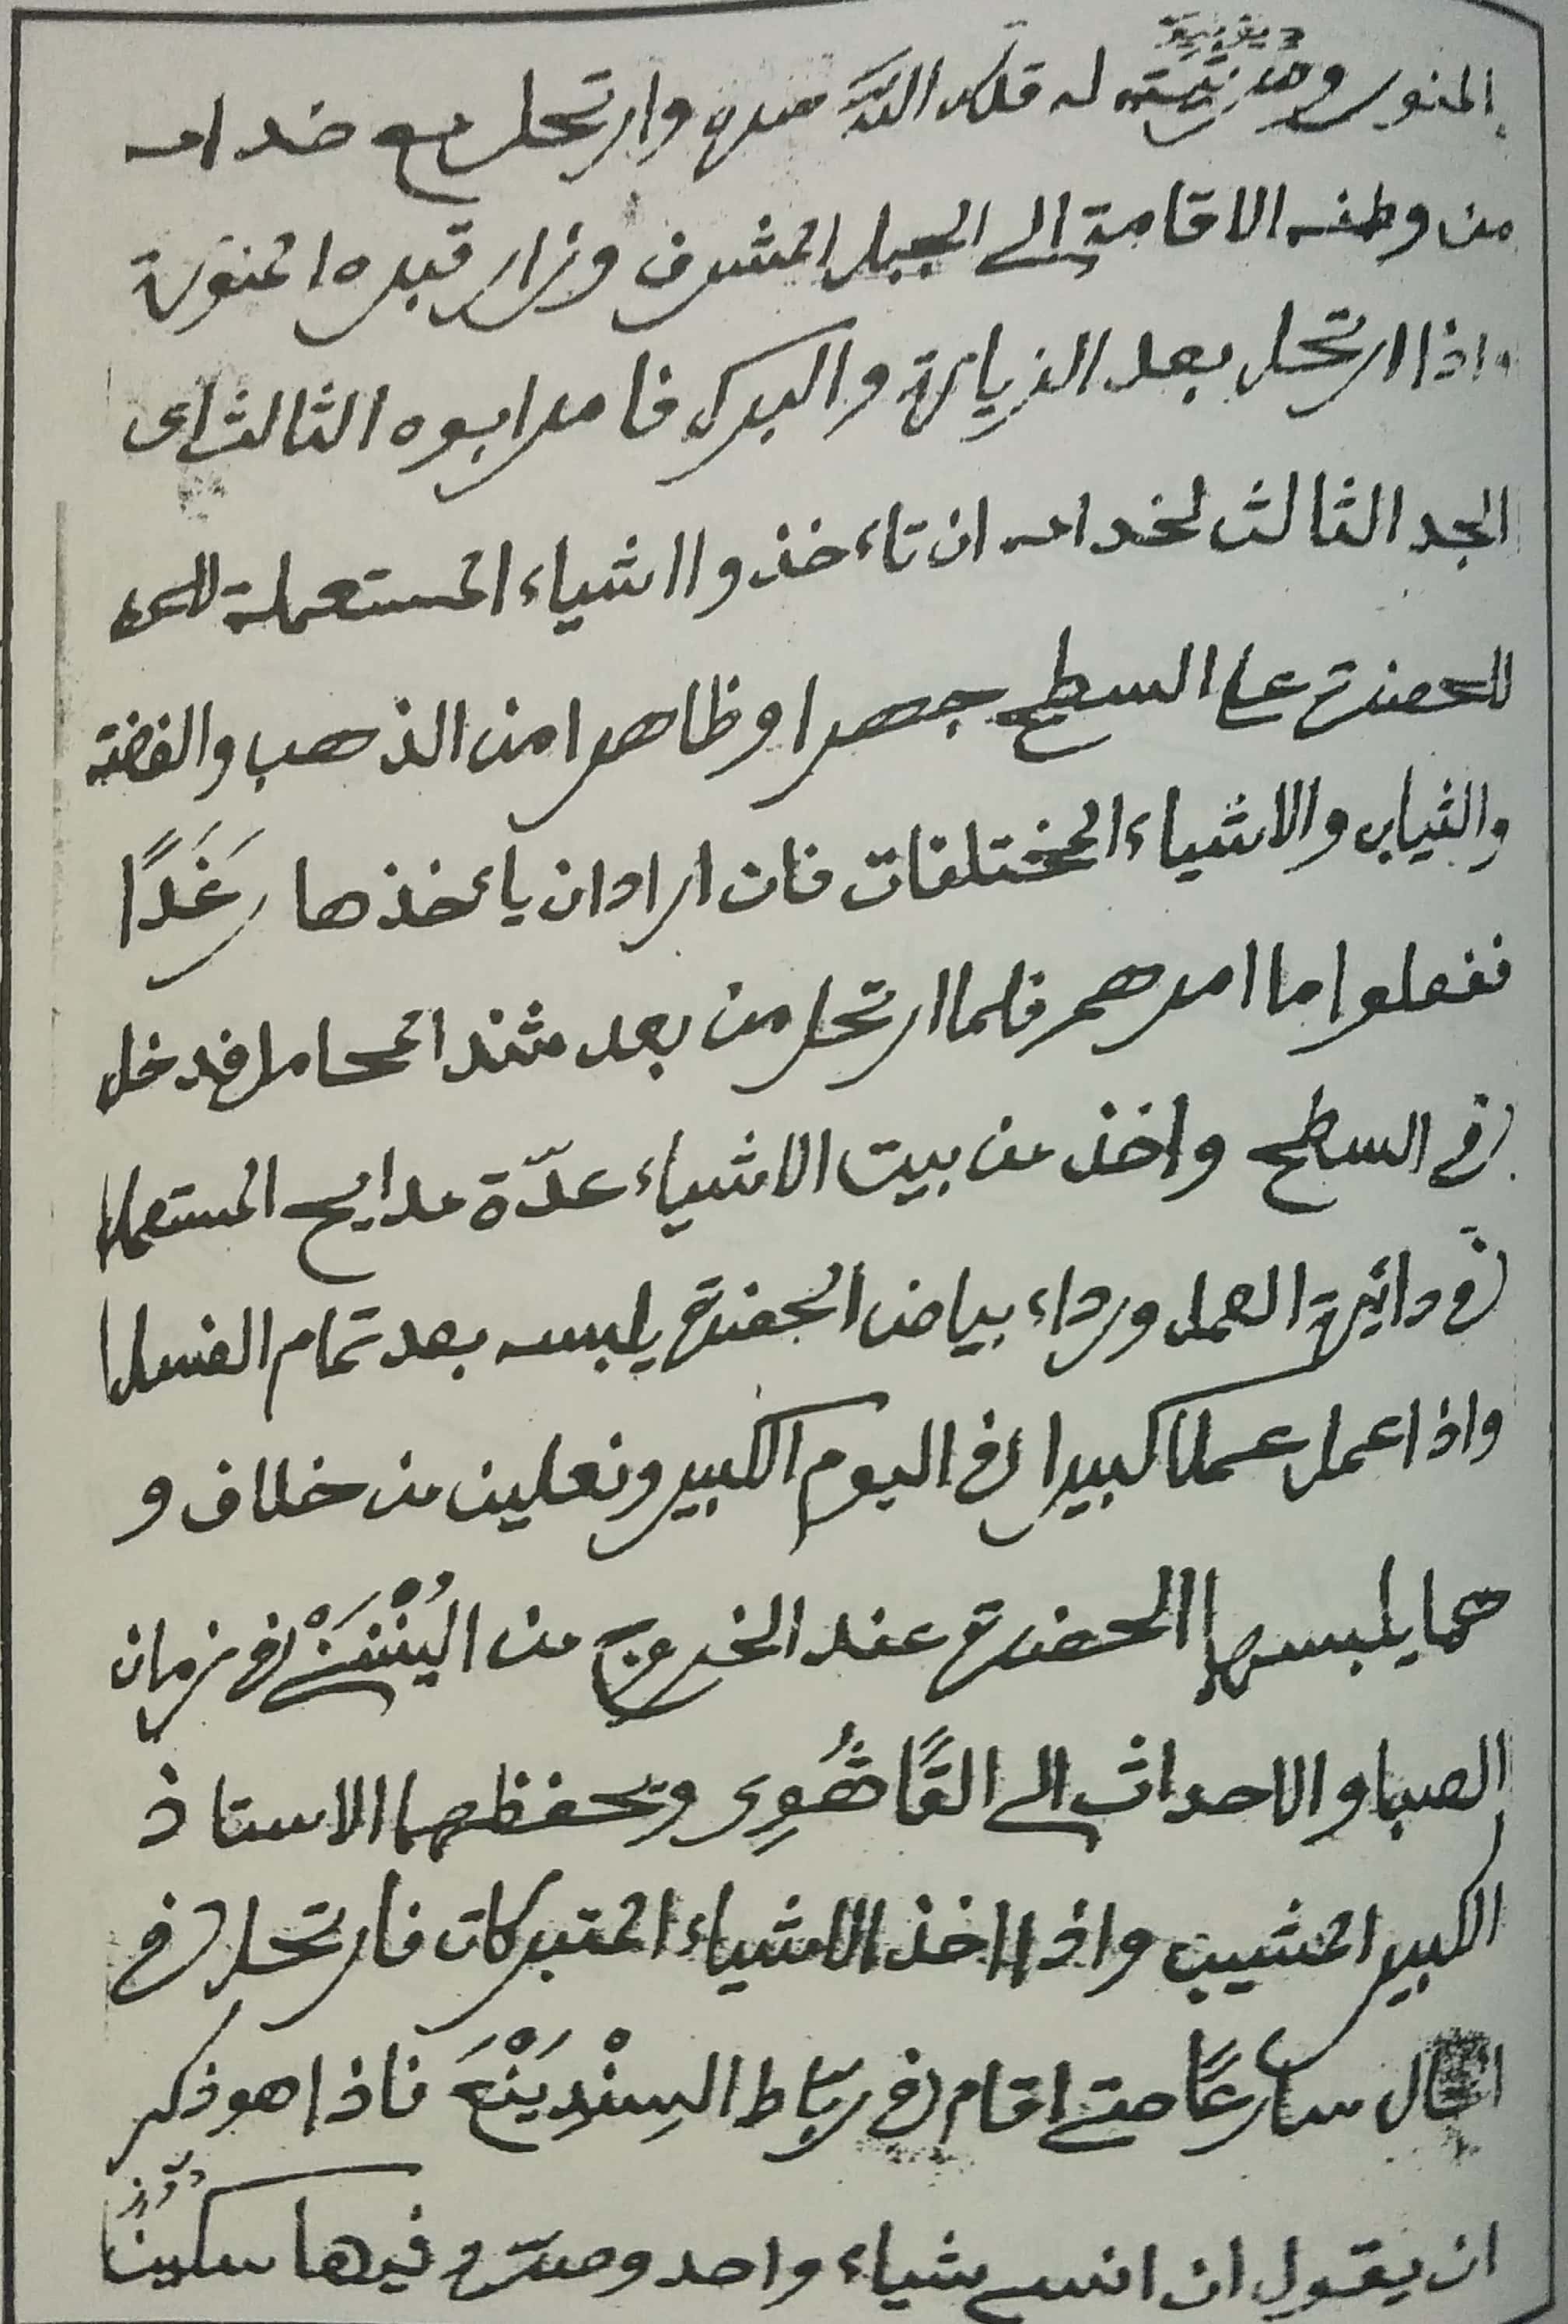 المنور له قدس الله سره وارتحل مع خدامه
من وطنه الاقامة الى الجبل المشرف وزار قبره المنورة
واذا ارتحل بعد الزيارة والبرك فامر ابوه الثالث اى
الجد الثالث لخدامه ان تاءخذوا اشياء المستعملة
للحضرة على السطح جهرا وظاهرا من الذهب والفضة
والثياب والاشياء المختلفات فان اراد ان يأخذها رَغَدًا
ففعلوا ما امرهم فلما ارتحل من بعد المحامل فدخل
فى السطح واخذ من بيت الاشياء عدّة المستعملة
فى دائرة العمل ورداء بياض الحضرة يلبسه بعد تمام الغسل
واذا عمل عملا كبيرا فى اليوم الكبير ونعلين من خلاف و
هما يلبسها الحضرة عند الخروج من فى زمان
الصبا والاحداث الى ويحفظهما الاستاذ
الكبير المشيب واذا اخذ الاشياء المتبركات فارتحل فى
الحال سارعًا حتى اقام فى رباط السِنْدِيَنْعَ فاذا هو ذكر
ان يقول ان انسى شياء واحد فيها سكين